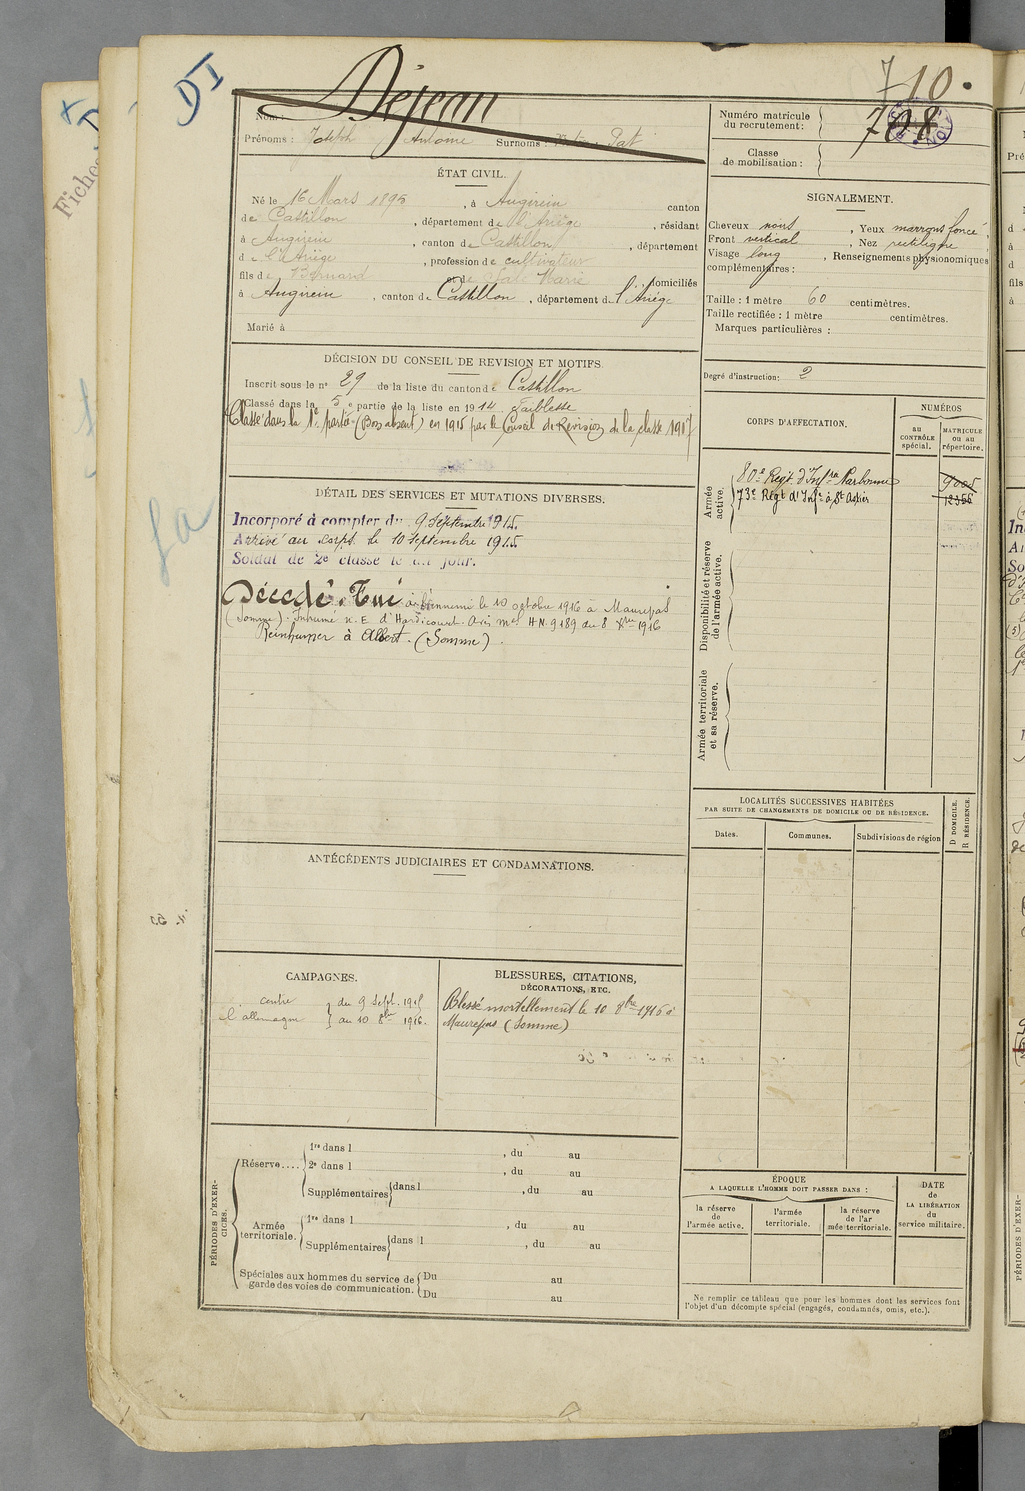 DI
Déjean
710.
708
Nom :
Prénoms : Joseph Antoine Surnoms :
Numéro matricule
du recrutement :
Classe
de mobilisation :
ÉTAT CIVIL.
Né le 16 Mars 1895, à Augirein canton
de Castillon, département de l'Ariège, résidant
à Augirein, canton de Castillon, département
de l'Ariège, profession de cultivateur
fils de Bernard et de Marie, domiciliés
à Augirein, canton de Castillon, département de l'Ariège
Marié à
SIGNALEMENT.
Cheveux noirs, Yeux marrons foncé,
Front vertical, Nez rectiligne
Visage long, Renseignements physionomiques
complémentaires :
Taille : 1 mètre 60 centimètres.
Taille rectifiée : 1 mètre centimètres.
Marques particulières :
Degré d'instruction : 2
DÉCISION DU CONSEIL DE REVISION ET MOTIFS.
Inscrit sous le n° 29 de la liste du canton de Castillon
Classé dans la 5e partie de la liste en 1914. Faiblesse
Classé dans la 1e partie (Bon absent) en 1915 par le Conseil de Révision de la classe 1917
CORPS D'AFFECTATION.
NUMÉROS
au
CONTRÔLE
spécial.
MATRICULE
ou au
répertoire.
Armée
active.
80e Regt. d'Infie à Narbonne 9005
73e Régt d'Infie à St Agnès 12356
Disponibilité et réserve
de l'armée active.
Armée territoriale
et sa réserve.
DÉTAIL DES SERVICES ET MUTATIONS DIVERSES.
Incorporé à compter du 9 Septembre 1915.
Arrivé au corps le 10 Septembre 1915
Soldat de 2e classe le dit jour.
Décédé. Tué à l'ennemi le 10 octobre 1916 à Maurepas
(Somme). Inhumé N.E. d'Hardicourt. Avis mel HN. 9189 du 8 Xbre 1916
Réinhumer à Albert. (Somme).
LOCALITÉS SUCCESSIVES HABITÉES
PAR SUITE DE CHANGEMENTS DE DOMICILE OU DE RÉSIDENCE.
Dates.
Communes.
Subdivisions de région
D DOMICILE.
R RÉSIDENCE.
ANTÉCÉDENTS JUDICIAIRES ET CONDAMNATIONS.
CAMPAGNES.
contre } du 9 Sept. 1915
l'allemagne } au 10 8bre 1916.
BLESSURES, CITATIONS,
DÉCORATIONS, ETC.
Blessé mortellement le 10 8bre 1916 à
Maurepas (Somme)
PÉRIODES D'EXERCICES.
Réserve....
1re dans l , du au
2e dans l , du au
Supplémentaires dans l , du au
Armée
territoriale.
1re dans l , du au
Supplémentaires dans l , du au
Spéciales aux hommes du service de
garde des voies de communication.
Du au
Du au
ÉPOQUE
A LAQUELLE L'HOMME DOIT PASSER DANS :
la réserve
de
l'armée active.
l'armée
territoriale.
la réserve
de l'ar
mée territoriale.
DATE
de
LA LIBÉRATION
du
service militaire.
Ne remplir ce tableau que pour les hommes dont les services font
l'objet d'un décompte spécial (engagés, condamnés, omis, etc.).